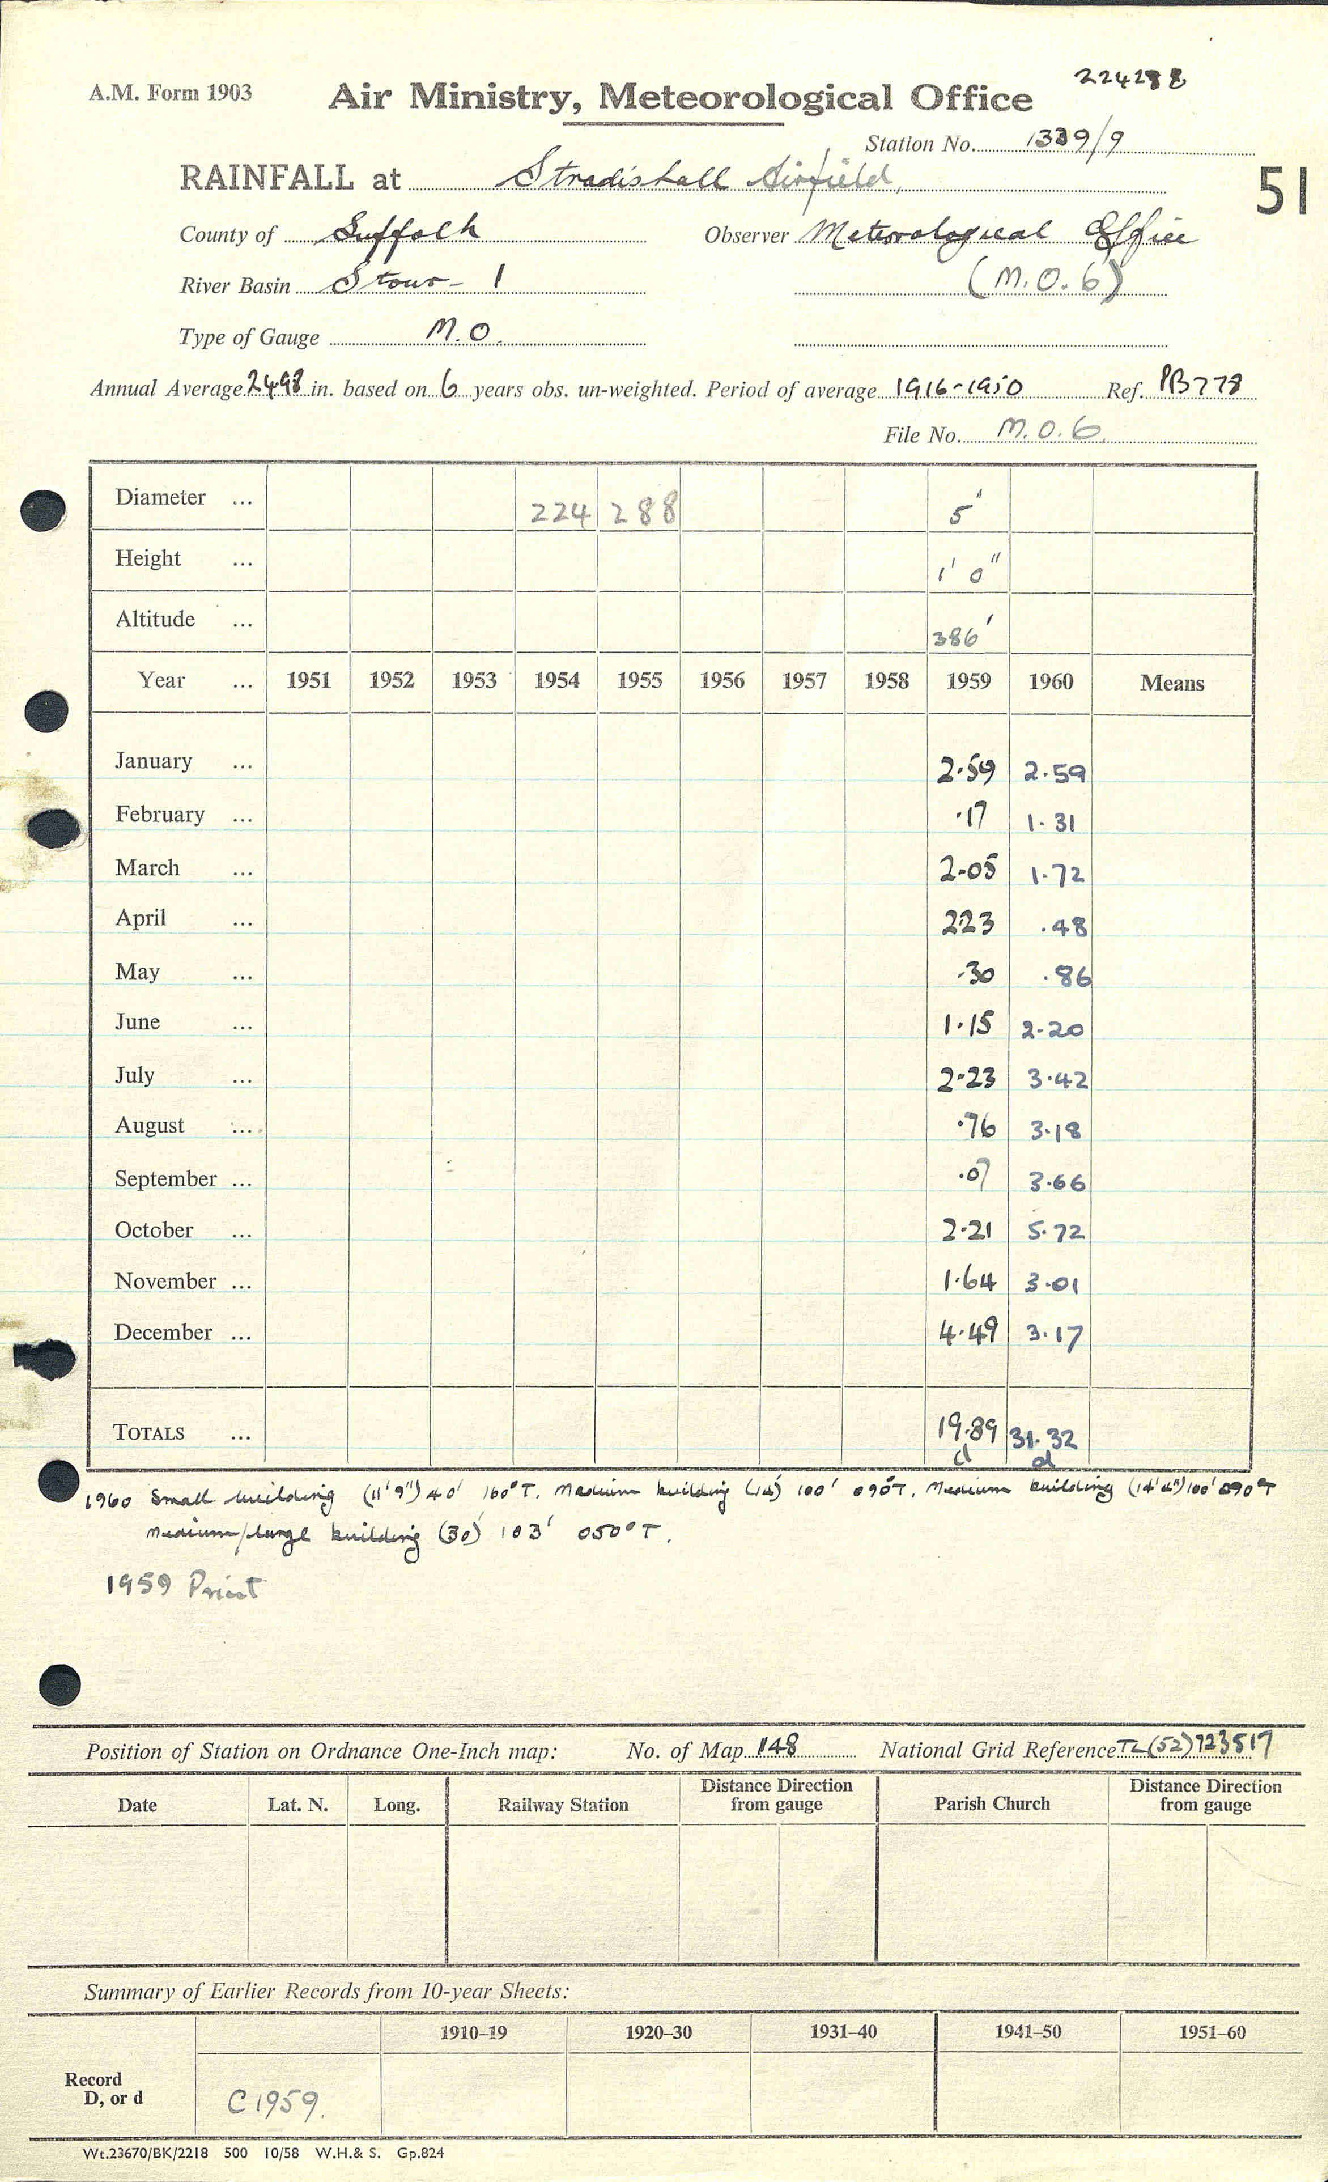 224288
A.M. Form 1903
Air Ministry, Meteorological Office
Station No. 1339/9
RAINFALL at Stradishall Airfield,
51
County of Suffolk Observer Meteorological Office
River Basin Stour - 1 (M.O.6)
Type of Gauge M.O.
Annual Average 24.98 in. based on 6 years obs. un-weighted. Period of average 1916-1950 Ref. PB778
File No. M.O.6.
Diameter ... 224 288 5'
Height ... 1' 0"
Altitude ... 386'
Year ... 1951 1952 1953 1954 1955 1956 1957 1958 1959 1960 Means
January ... 2.59 2.59
February ... .17 1.31
March ... 2.05 1.72
April ... 2.23 .48
May ... .30 .86
June ... 1.15 2.20
July ... 2.23 3.42
August ... .76 3.18
September ... .07 3.66
October ... 2.21 5.72
November ... 1.64 3.01
December ... 4.49 3.17
TOTALS ... 19.89 31.32
d d
1960 Small building (11'9") 40' 160°T. Medium building 100' 090°T. Medium building (14'4") 100' 090°T
Medium/large building (30') 103' 050°T.
1959 Print
Position of Station on Ordnance One-Inch map: No. of Map 148 National Grid Reference TL(52)723517
Date Lat. N. Long. Railway Station Distance Direction from gauge Parish Church Distance Direction from gauge
Summary of Earlier Records from 10-year Sheets:
1910-19 1920-30 1931-40 1941-50 1951-60
Record
D, or d C 1959.
Wt.23670/BK/2218 500 10/58 W.H.& S. Gp.824